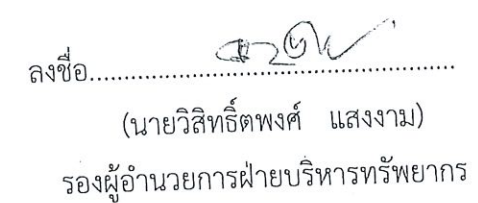 ลงชื่อ.......................................................
(นายวิสิทธิ์ตพงศ์ แสงงาม)
รองผู้อำนวยการฝ่ายบริหารทรัพยากร